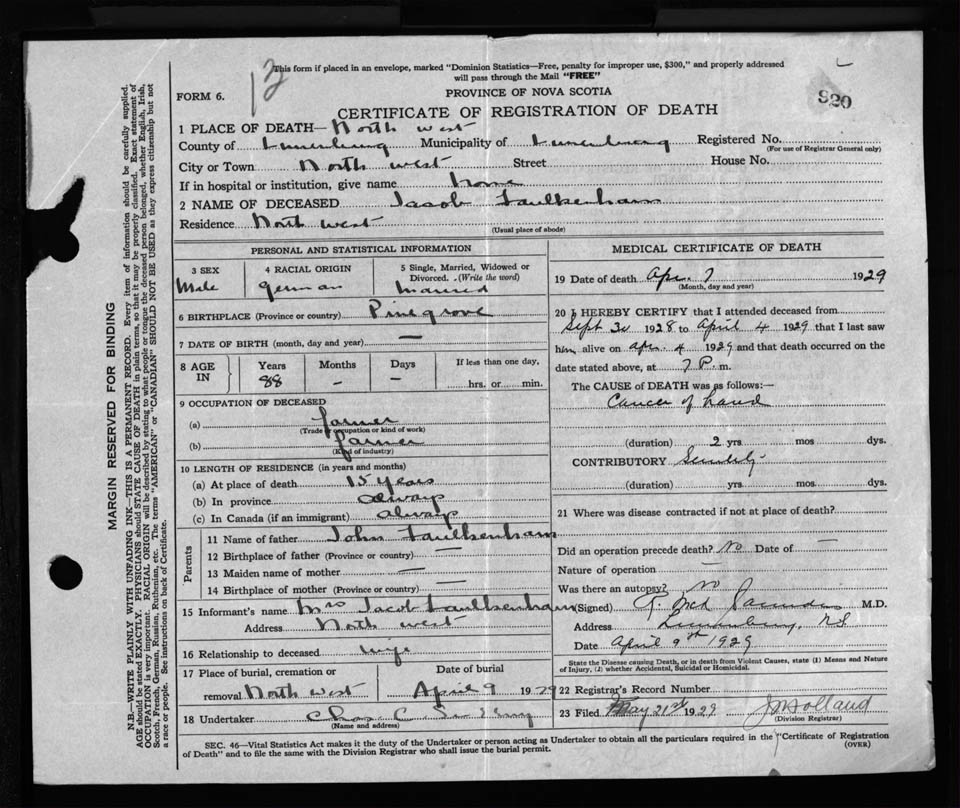 12
This form if placed in an envelope, marked "Dominion Statistics—Free, penalty for improper use, $300," and properly addressed
will pass through the Mail "FREE"
FORM 6.
PROVINCE OF NOVA SCOTIA
920
CERTIFICATE OF REGISTRATION OF DEATH
1 PLACE OF DEATH— North west
County of Lunenburg Municipality of Lunenburg Registered No.
(For use of Registrar General only)
City or Town North west Street House No.
If in hospital or institution, give name home
2 NAME OF DECEASED Jacob Faulkenham
Residence North West
(Usual place of abode)
PERSONAL AND STATISTICAL INFORMATION
3 SEX 4 RACIAL ORIGIN 5 Single, Married, Widowed or
Divorced. (Write the word)
Male German Married
6 BIRTHPLACE (Province or country) Pinegrove
7 DATE OF BIRTH (month, day and year) —
8 AGE IN Years Months Days If less than one day,
88 – – hrs. or min.
9 OCCUPATION OF DECEASED
(a) farmer
(Trade or occupation or kind of work)
(b) farmer
(Kind of industry)
10 LENGTH OF RESIDENCE (in years and months)
(a) At place of death 15 years
(b) In province always
(c) In Canada (if an immigrant) always
Parents
11 Name of father John Faulkenham
12 Birthplace of father (Province or country) —
13 Maiden name of mother —
14 Birthplace of mother (Province or country) —
15 Informant's name Mrs Jacob Faulkenham
Address North west
16 Relationship to deceased wife
17 Place of burial, cremation or Date of burial
removal North West April 9 1929
18 Undertaker Chas C
(Name and address)
MEDICAL CERTIFICATE OF DEATH
19 Date of death Apr. 7 1929
(Month, day and year)
20 I HEREBY CERTIFY that I attended deceased from
Sept 30 1928 to April 4 1929 that I last saw
him alive on apr. 4 1929 and that death occurred on the
date stated above, at 7 P. m.
The CAUSE of DEATH was as follows:—
Cancer of hand
(duration) 2 yrs mos dys.
CONTRIBUTORY Senility
(duration) yrs mos dys.
21 Where was disease contracted if not at place of death?
Did an operation precede death? No Date of —
Nature of operation —
Was there an autopsy? no
(Signed) M.D.
Address Lunenburg, NS
Date April 9th 1929
State the Disease causing Death, or in death from Violent Causes, state (1) Means and Nature
of Injury, (2) whether Accidental, Suicidal or Homicidal.
22 Registrar's Record Number
23 Filed May 21st 1929 Holland
(Division Registrar)
SEC. 46—Vital Statistics Act makes it the duty of the Undertaker or person acting as Undertaker to obtain all the particulars required in the "Certificate of Registration
of Death" and to file the same with the Division Registrar who shall issue the burial permit. (OVER)
MARGIN RESERVED FOR BINDING
N.B.—WRITE PLAINLY WITH UNFADING INK—THIS IS A PERMANENT RECORD. Every item of information should be carefully supplied.
AGE should be stated EXACTLY. PHYSICIANS should STATE CAUSE OF DEATH in plain terms, so that it may be properly classified. Exact statement of
OCCUPATION is very important. RACIAL ORIGIN will be described by stating to what people or tongue the deceased person belonged, whether English, Irish,
Scotch, French, German, Russian, Ruthenian, etc. The terms "AMERICAN" or "CANADIAN" SHOULD NOT BE USED as they express citizenship but not
a race or people. See instructions on back of Certificate.